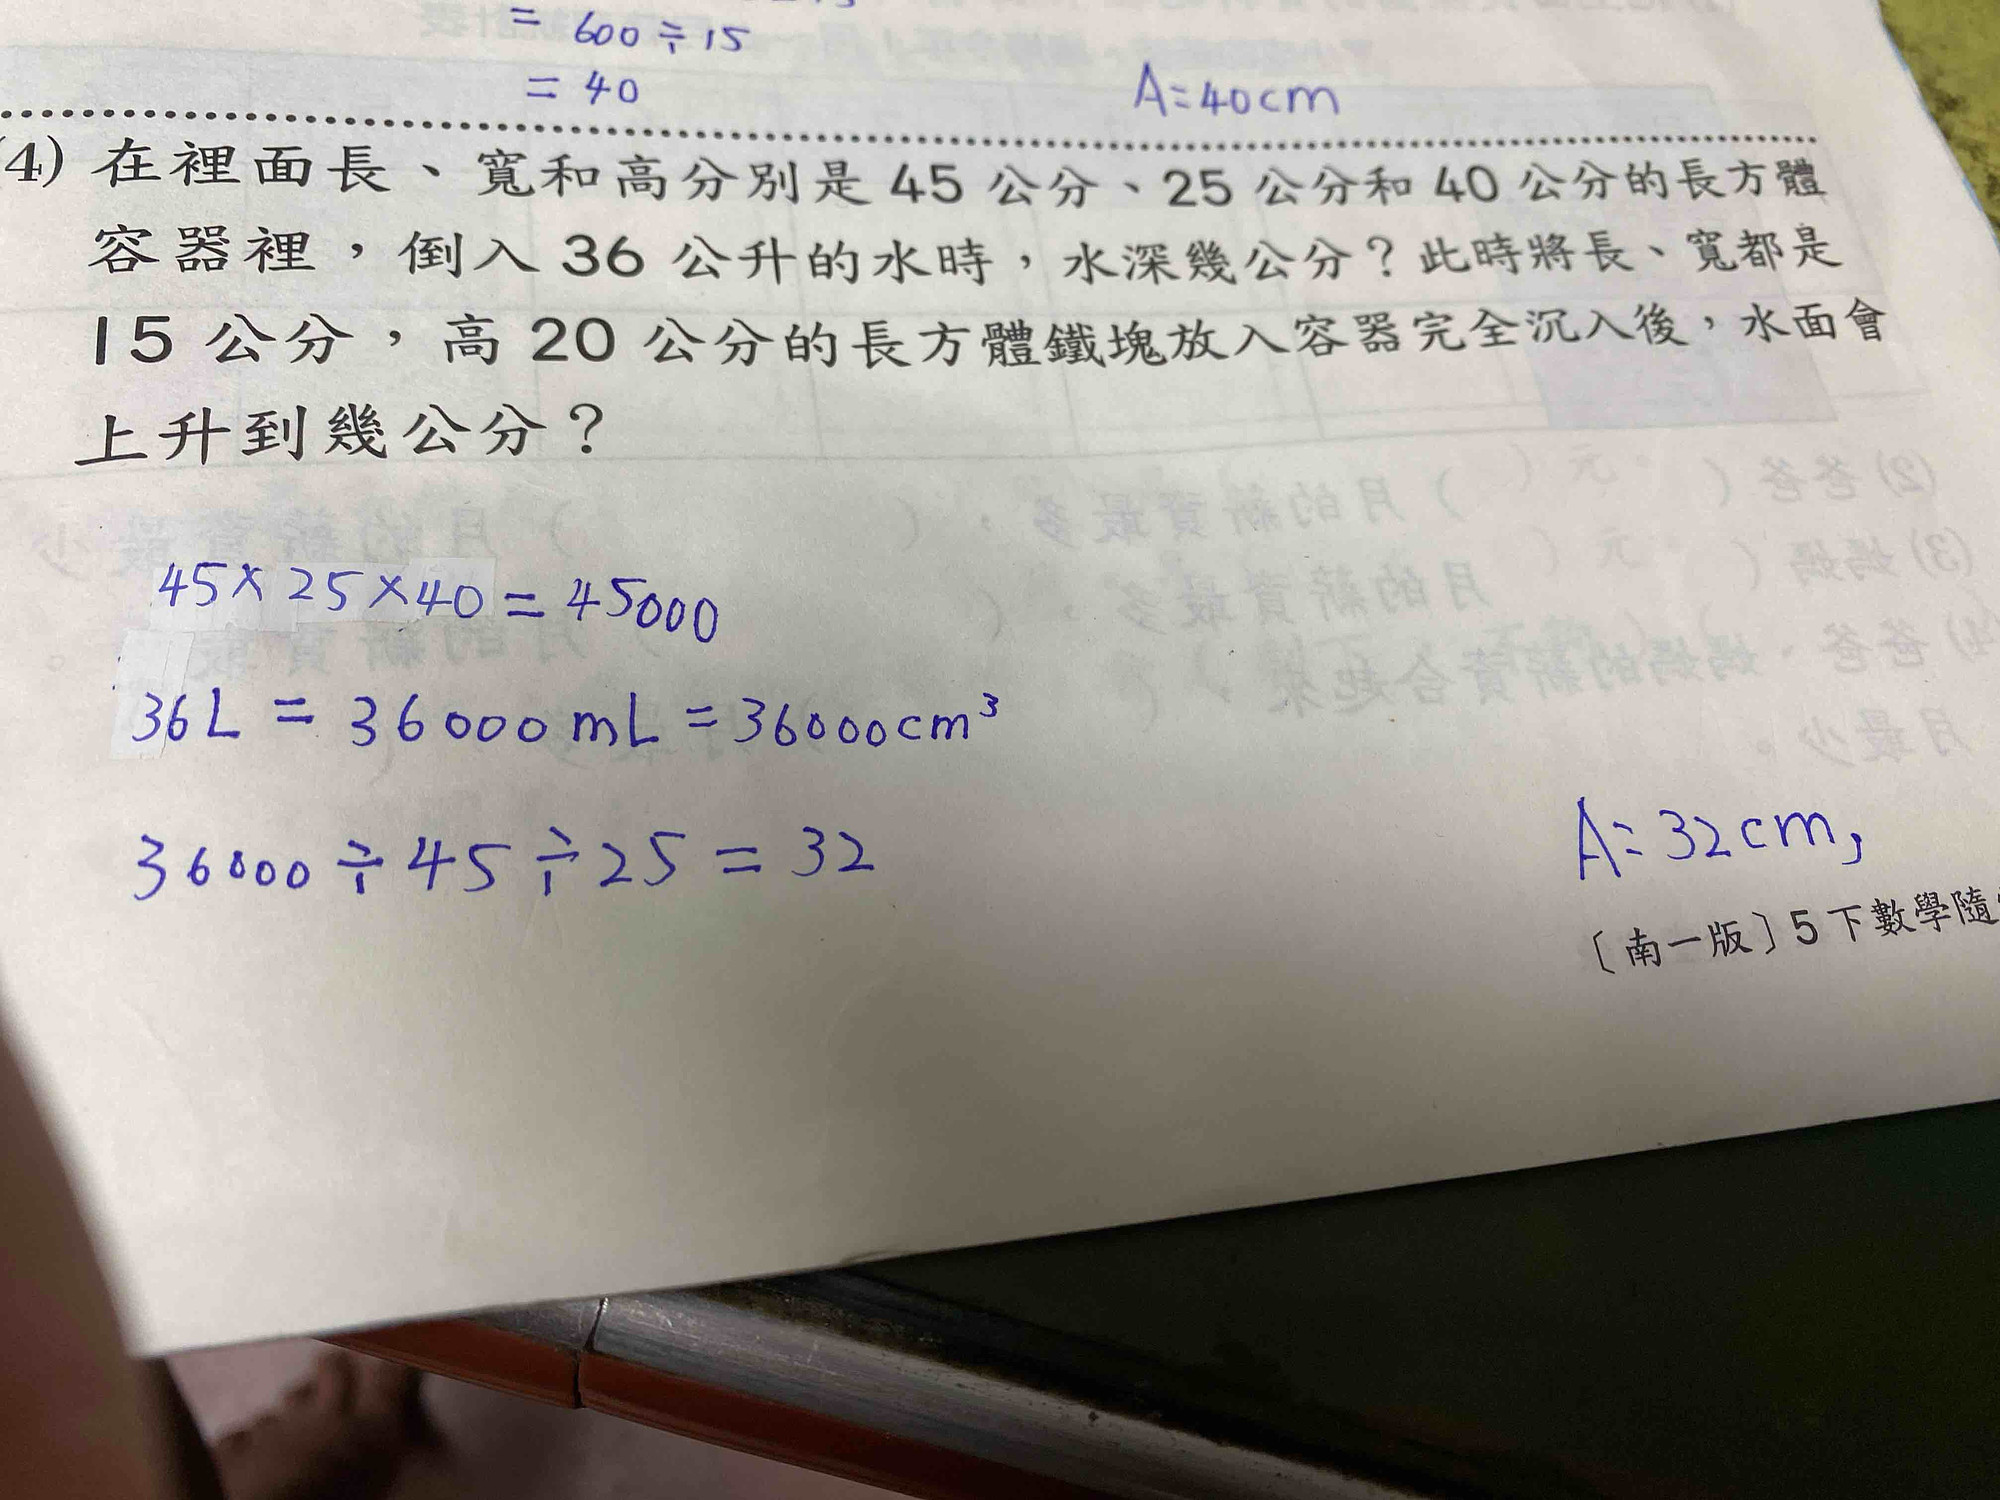 = 600÷15
= 40
A=40cm
(4) 在裡面長、寬和高分別是 45 公分、25 公分和 40 公分的長方體
容器裡，倒入 36 公升的水時，水深幾公分？此時將長、寬都是
15 公分，高 20 公分的長方體鐵塊放入容器完全沉入後，水面會
上升到幾公分？
45×25×40=45000
36L=36000mL=36000cm³
36000÷45÷25=32
A=32cm,
〔南一版〕5下數學隨